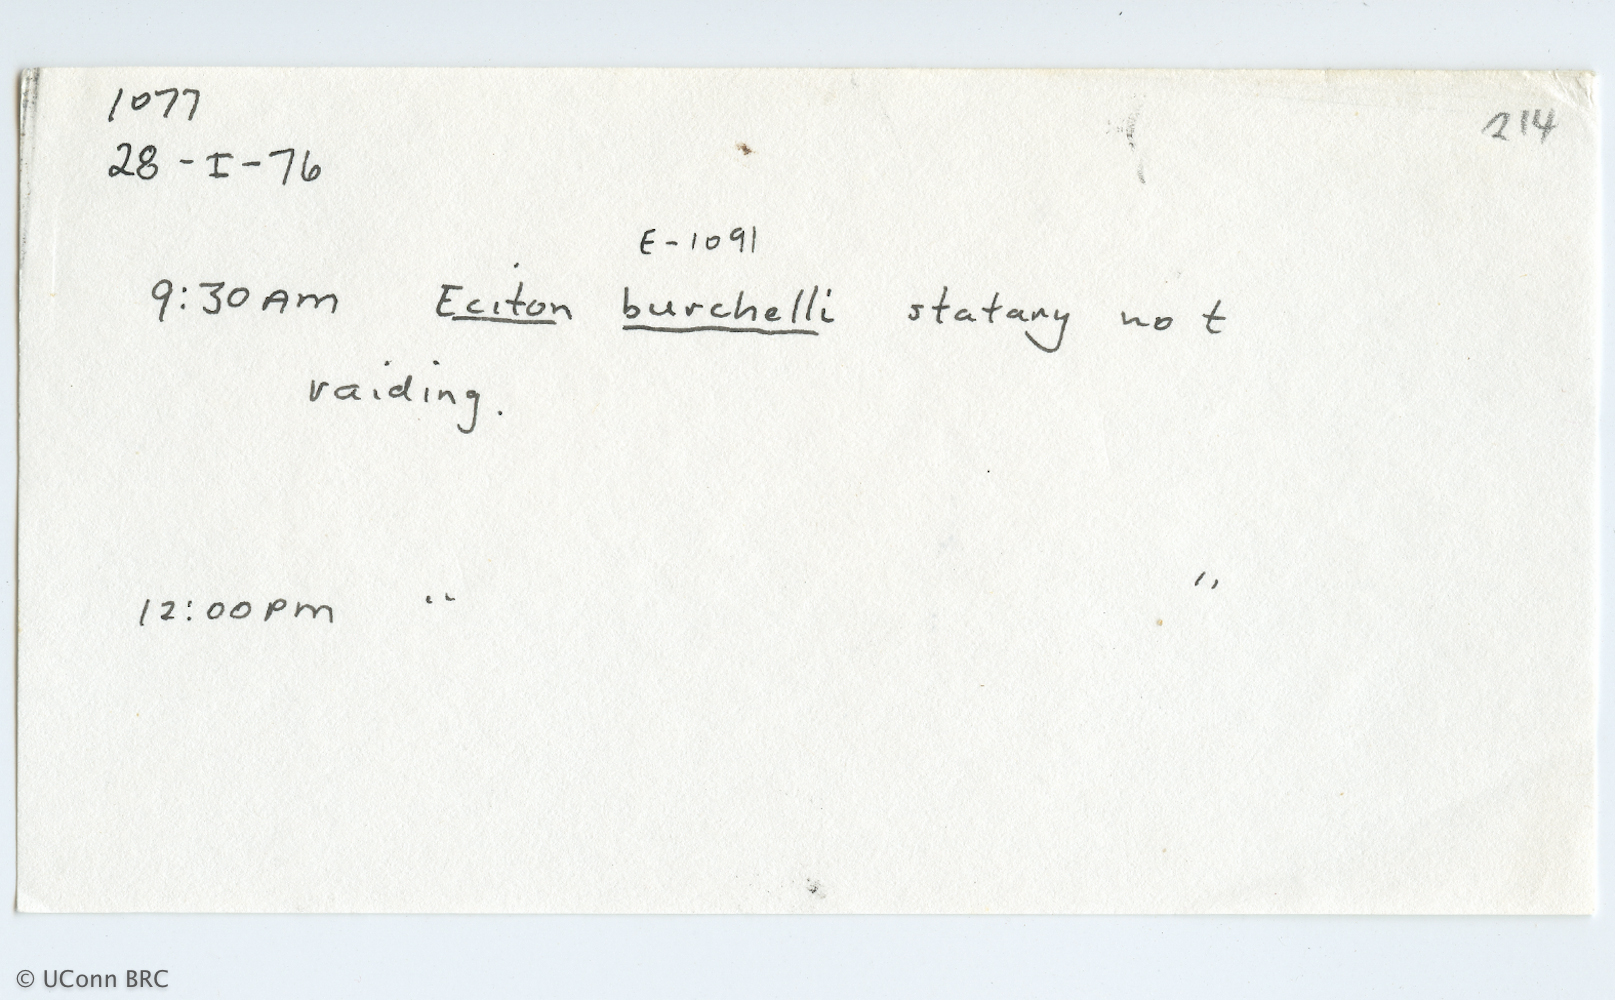 1077
214
28-I-76
E-1091
9:30 AM Eciton burchelli statary not
raiding.
12:00 PM " "
© UConn BRC